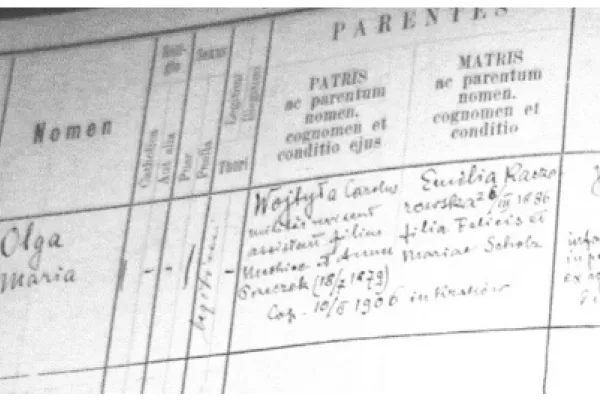 PARENTES
Nomen
Religio
Catholica
Aut alia
Sexus
Puer
Puella
Thori
Legitimi
Illegitimi
PATRIS
ac parentum
nomen,
cognomen et
conditio ejus
MATRIS
ac parentum
nomen,
cognomen et
conditio
Olga
Maria
legitimi
Wojtyła Carolus
filius
et Anna
Przeczek (18/7 1879)
Cop. 10/
1906
Emilia Kaczo
rowska 26/III 1886
filia Felicis et
Mariae Scholz